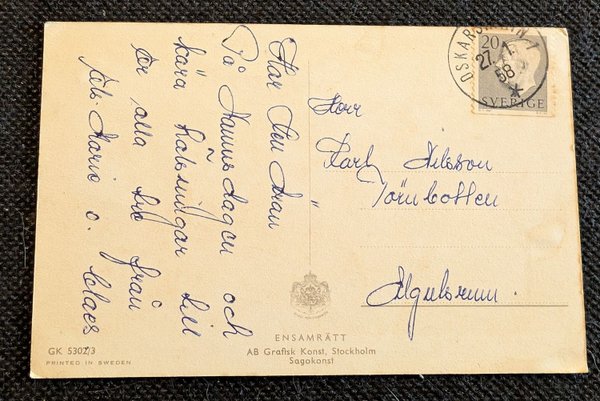 Har Den Äran
På Namnsdagen och
kära Hälsningar till
Er alla från
o. Claes.
Herr
Karl Nilsson
Törnbotten
Algutsrum.
OSKARSHAMN 1
27. 1. 58
20
SVERIGE
ENSAMRÄTT
AB Grafisk Konst, Stockholm
Sagokonst
GK 5302/3
PRINTED IN SWEDEN